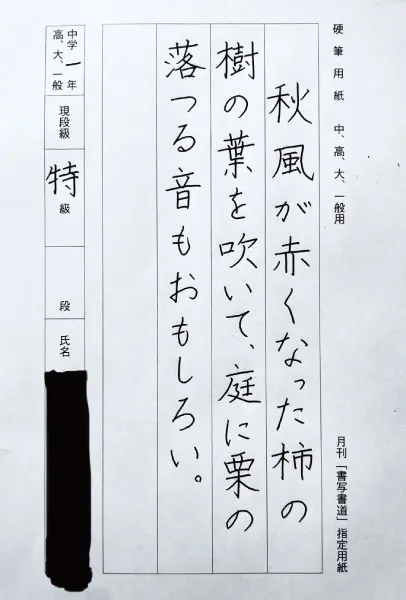 硬筆用紙　中、高、大、一般用
月刊「書写書道」指定用紙
秋風が赤くなった柿の
樹の葉を吹いて、庭に栗の
落つる音もおもしろい。
中学一年
高、大、一般
現段級
特級
段
氏名